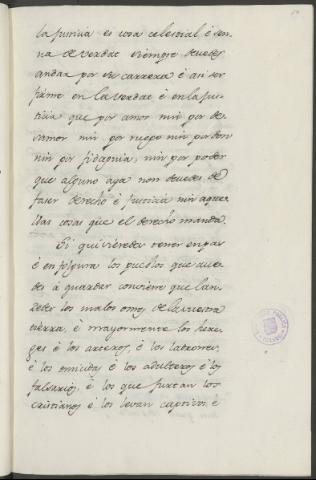 la justicia es cosa celestial, é bue-
na de verdat siempre deuedes
andar por su carrera é asi ser
firme en la verdat é en la jus-
ticia que por amor nin por de-
samor nin por ruego nin por don
nin por fidalguia, nin por poder
que alguno aya non deuedes de
faser derecho é justicia nin aque-
llas cosas que el derecho manda.
Si quisieredes tener en pas
é en folgura los pueblos que aue-
des á guardar conviene que lan-
dedes los malos omes de la vuestra
tierra, é mayormente los here-
ges é los é los ladrones,
é los omicidas é los adulteros é los
falsarios, é los que furtan los
cristianos é los levan captivos, é